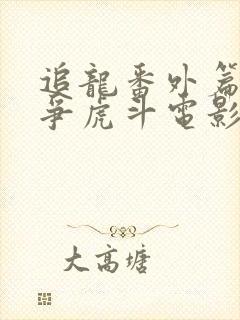 追龍番外篇
爭虎斗電影
大高塘